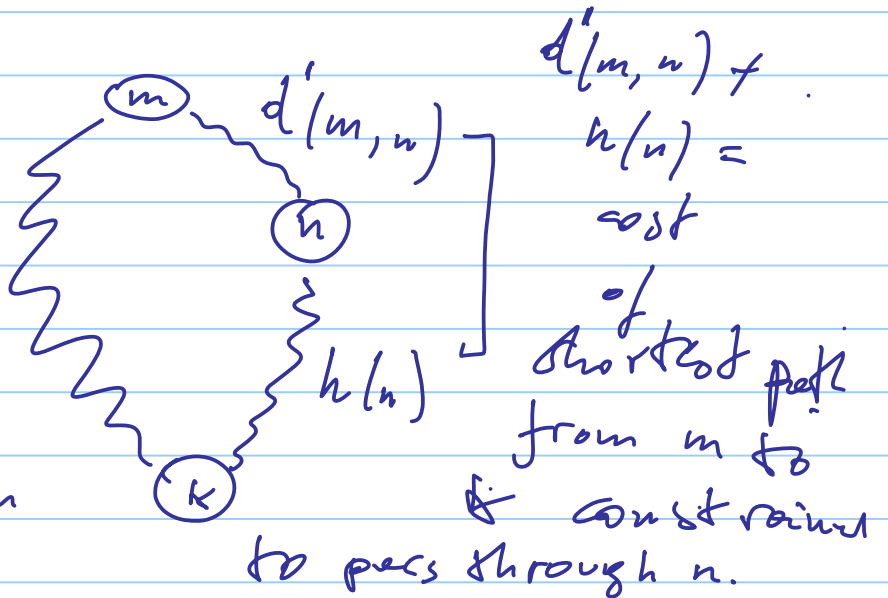 m
d'(m, n)
n
h(n)
k
n
d'(m, n) +
h(n) =
cost
of
shortest path
from m to
k constrained
to pass through n.